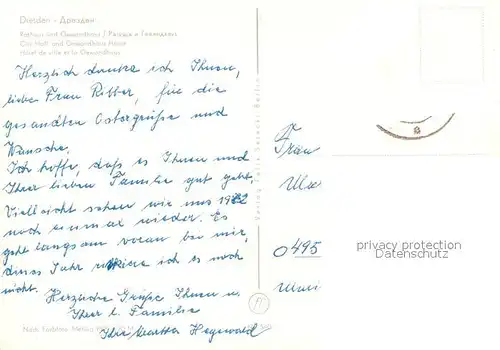 Dresden - Дрезден
Rathaus und Gewandhaus / Ратуша и Гевандхауз
City Hall and Gewandhaus House
Hôtel de ville et le Gewandhaus
Herzlich danke ich Ihnen,
liebe Frau Ritter, für die
gesandten Ostergrüße und
Wünsche.
Ich hoffe, daß es Ihnen und
Ihrer lieben Familie gut geht.
Vielleicht sehen wir uns 1982
noch einmal wieder. Es
geht langsam voran bei mir,
dieses Jahr ich es noch
nicht.
Herzliche Grüße Ihnen u.
Ihrer l. Familie
Ihre Martha
Frau
0495
privacy protection
Datenschutz